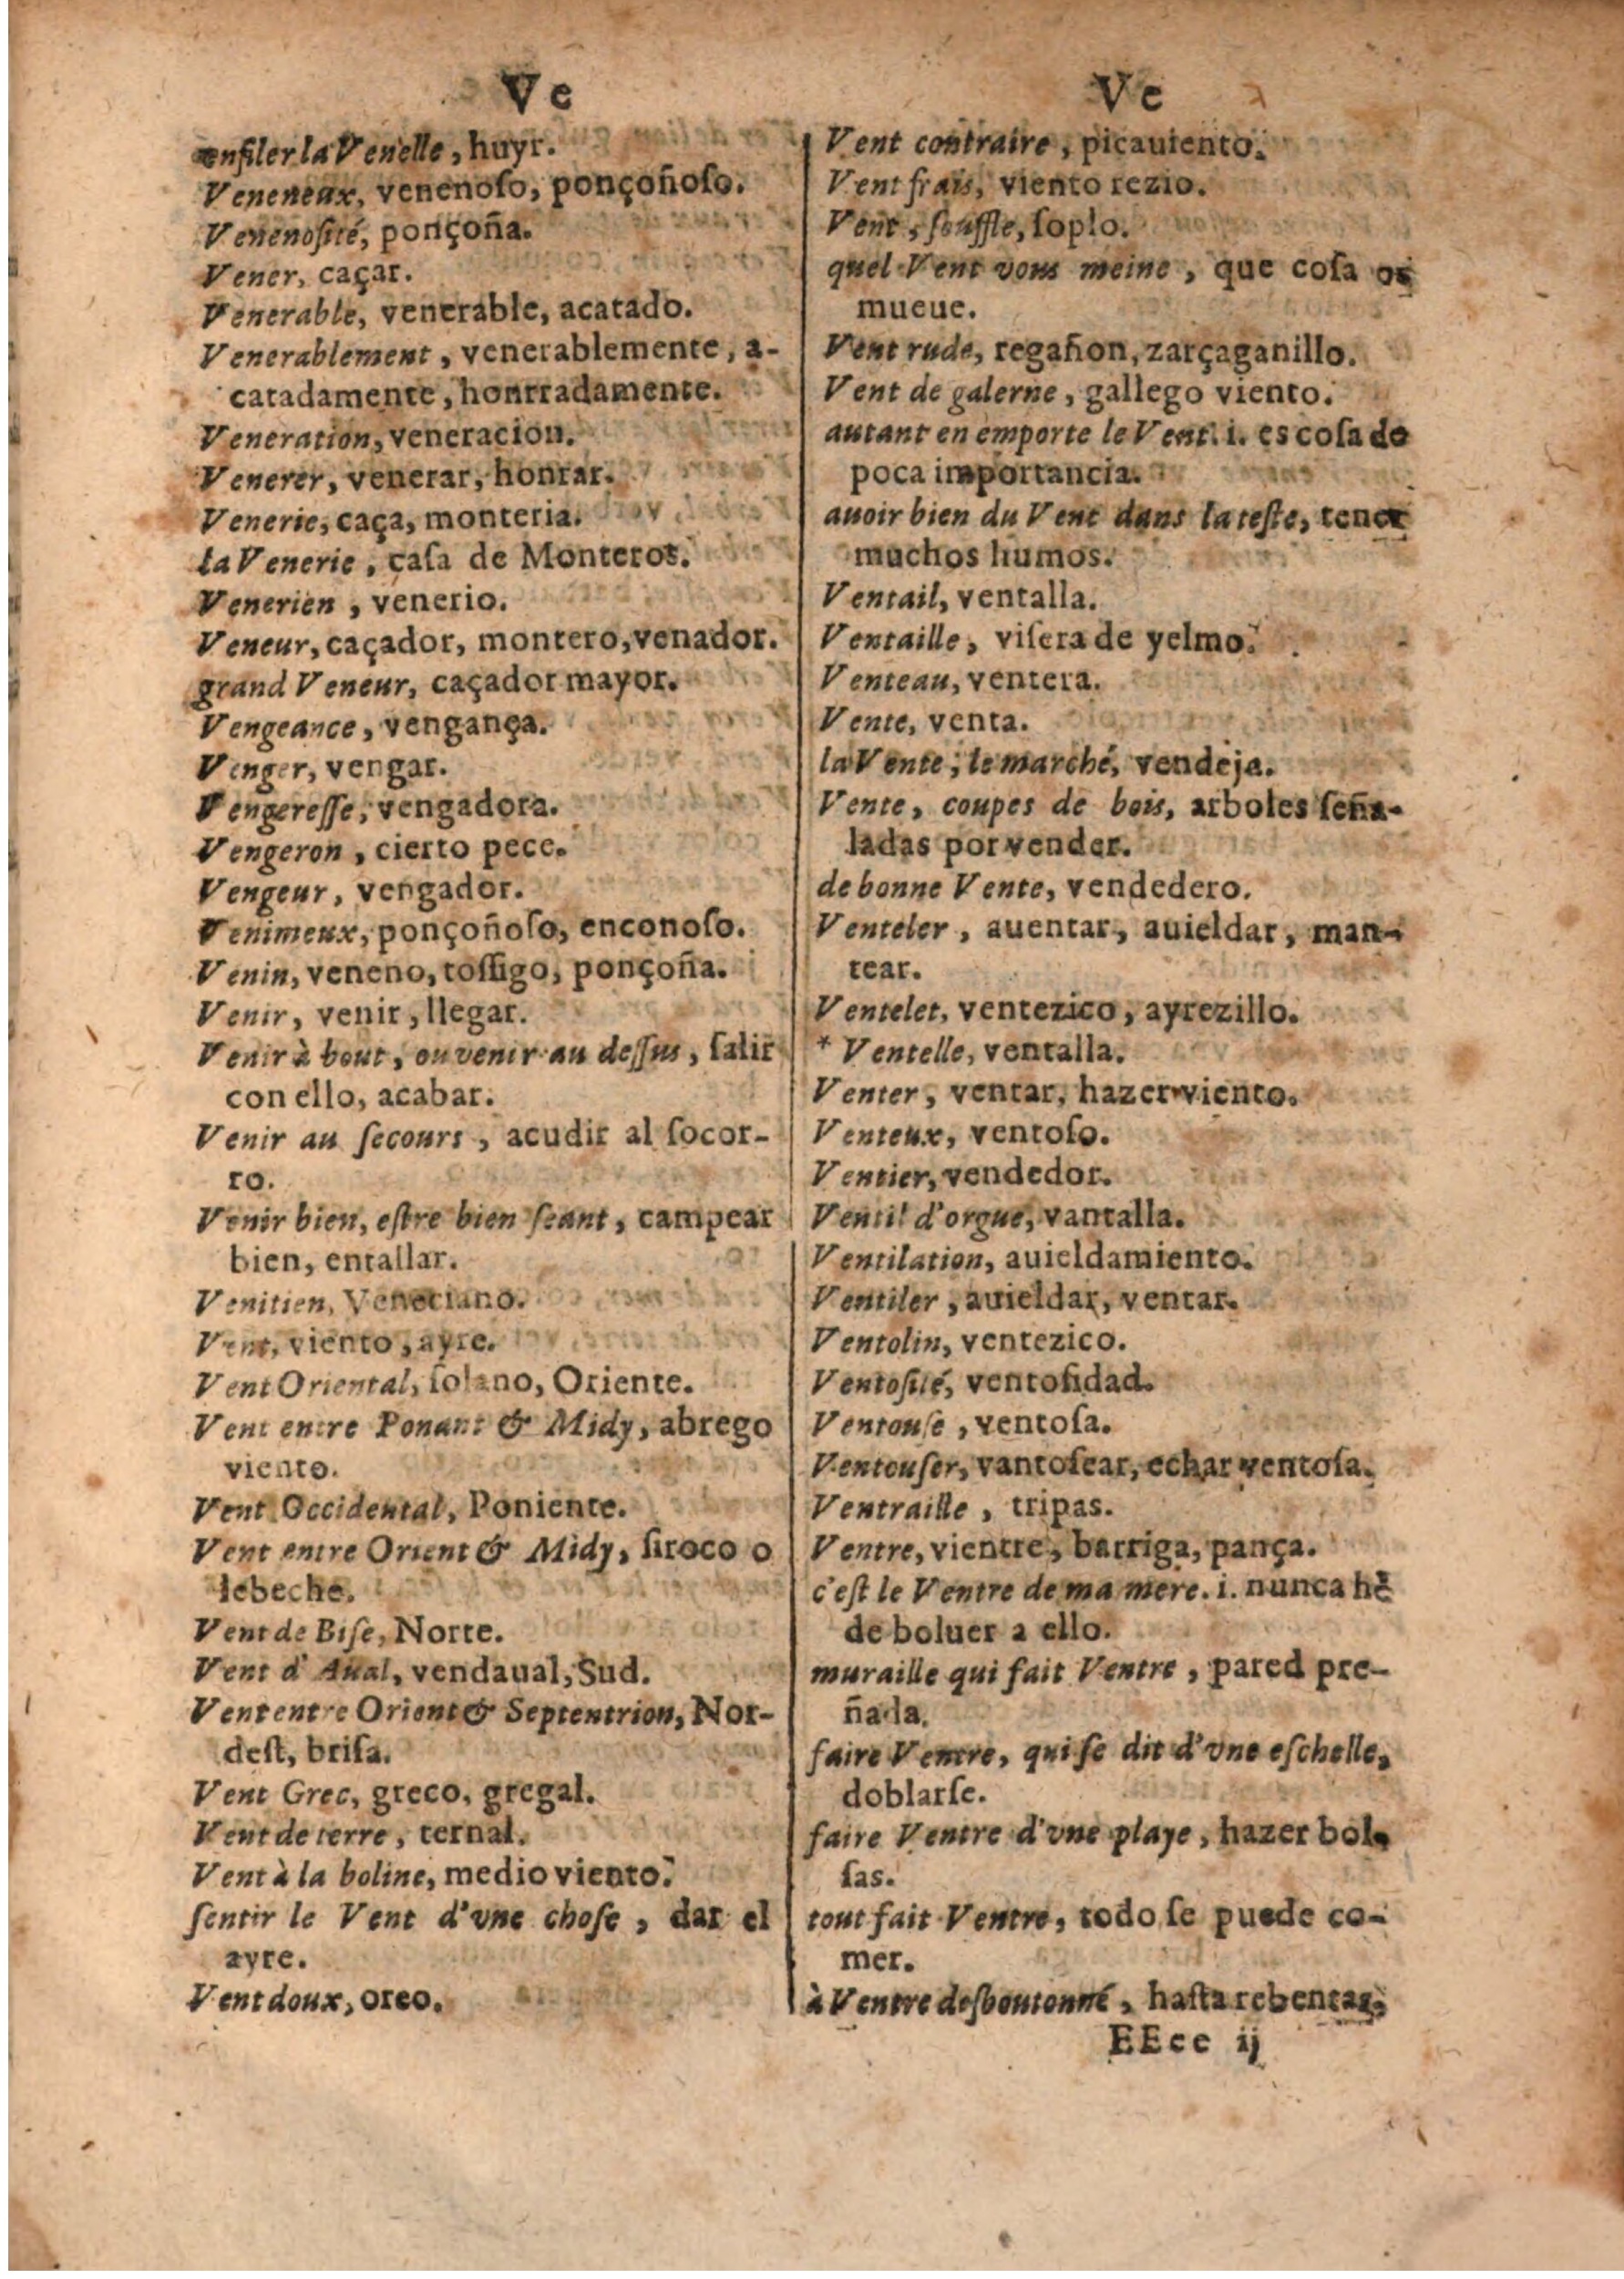 Ve
enfiler la Venelle, huyr.
Veneneux, venenoſo, ponçoñoſo.
Venenoſité, ponçoña.
Vener, caçar.
Venerable, venerable, acatado.
Venerablement, venerablemente, a-
catadamente, honrradamente.
Veneration, veneracion.
Venerer, venerar, honrar.
Venerie, caça, monteria.
la Venerie, caſa de Monteros.
Venerien, venerio.
Veneur, caçador, montero, venador.
grand Veneur, caçador mayor.
Vengeance, vengança.
Venger, vengar.
Vengereſſe, vengadora.
Vengeron, cierto pece.
Vengeur, vengador.
Venimeux, ponçoñoſo, enconoſo.
Venin, veneno, toſſigo, ponçoña.
Venir, venir, llegar.
Venir à bout, ou venir au deſſus, ſalir
con ello, acabar.
Venir au ſecours, acudir al ſocor-
ro.
Venir bien, eſtre bien ſeant, campear
bien, entallar.
Venitien, Veneciano.
Vent, viento, ayre.
Vent Oriental, ſolano, Oriente.
Vent entre Ponant & Midy, abrego
viento.
Vent Occidental, Poniente.
Vent entre Orient & Midy, ſiroco o
lebeche.
Vent de Biſe, Norte.
Vent d'Aual, vendaual, Sud.
Vent entre Orient & Septentrion, Nor-
deſt, briſa.
Vent Grec, greco, gregal.
Vent de terre, ternal.
Vent à la boline, medio viento.
ſentir le Vent d'vne choſe, dar el
ayre.
Vent doux, oreo.
Ve
Vent contraire, picauiento.
Vent frais, viento rezio.
Vent, ſouffle, ſoplo.
quel Vent vous meine, que coſa os
mueue.
Vent rude, regañon, zarçaganillo.
Vent de galerne, gallego viento.
autant en emporte le Vent. i. es coſa de
poca importancia.
auoir bien du Vent dans la teſte, tener
muchos humos.
Ventail, ventalla.
Ventaille, viſera de yelmo.
Venteau, ventera.
Vente, venta.
la Vente, le marché, vendeja.
Vente, coupes de bois, arboles ſeña-
ladas por vender.
de bonne Vente, vendedero.
Venteler, auentar, auieldar, man-
tear.
Ventelet, ventezico, ayrezillo.
* Ventelle, ventalla.
Venter, ventar, hazer viento.
Venteux, ventoſo.
Ventier, vendedor.
Ventil d'orgue, vantalla.
Ventilation, auieldamiento.
Ventiler, auieldar, ventar.
Ventolin, ventezico.
Ventoſité, ventoſidad.
Ventouſe, ventoſa.
Ventouſer, vantoſear, echar ventoſa.
Ventraille, tripas.
Ventre, vientre, barriga, pança.
c'eſt le Ventre de ma mere. i. nunca hè
de boluer a ello.
muraille qui fait Ventre, pared pre-
ñada.
faire Ventre, qui ſe dit d'vne eſchelle,
doblarſe.
faire Ventre d'vne playe, hazer bol-
ſas.
tout fait Ventre, todo ſe puede co-
mer.
à Ventre deſboutonné, haſta rebentar.
EEee ij